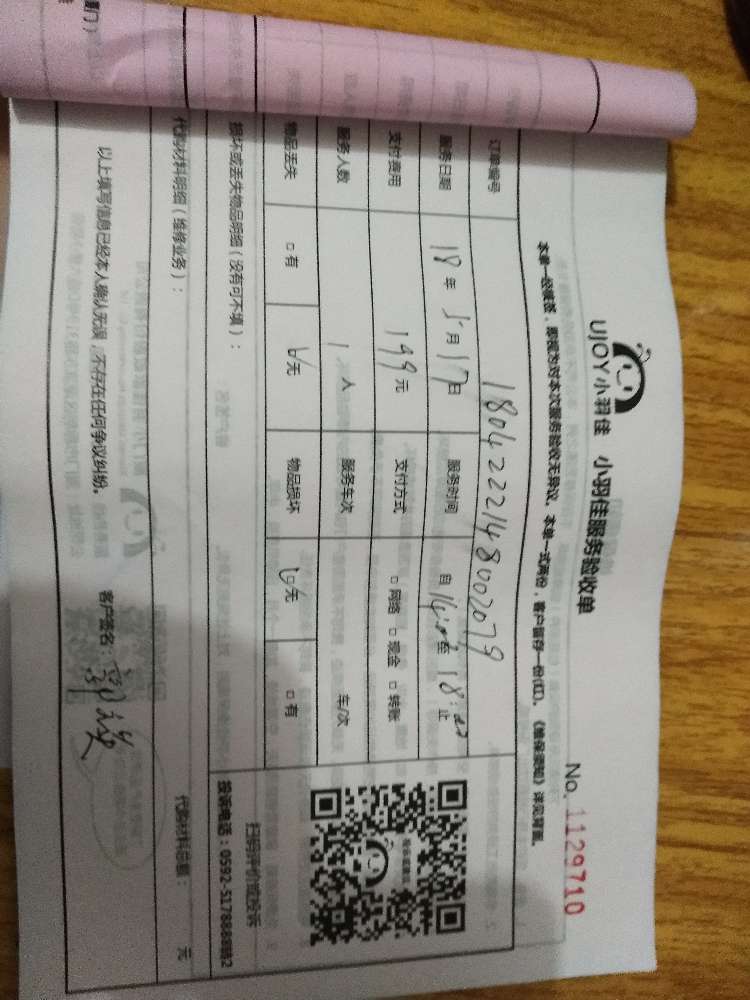 UJOY小羽佳 小羽佳服务验收单
No. 1129710
本单一经填签，即视为对本次服务验收无异议。本单一式两份，客户留存一份(红)。《维保须知》详见背面。
订单编号 180422214800 2079
服务日期 18年 5月17日 服务时间 自 至 18:00 止
支付费用 199元 支付方式 □网络 □现金 □转账
服务人数 1 人 服务车次 车/次
物品丢失 □有 无 物品损坏 无 □有
扫码评价或投诉
投诉电话：0592-5178888转2
损坏或丢失物品明细（没有可不填）：
代购材料明细（维修业务）：
代购材料总额： 元
以上填写信息已经本人确认无误，不存在任何争议纠纷。 客户签名：